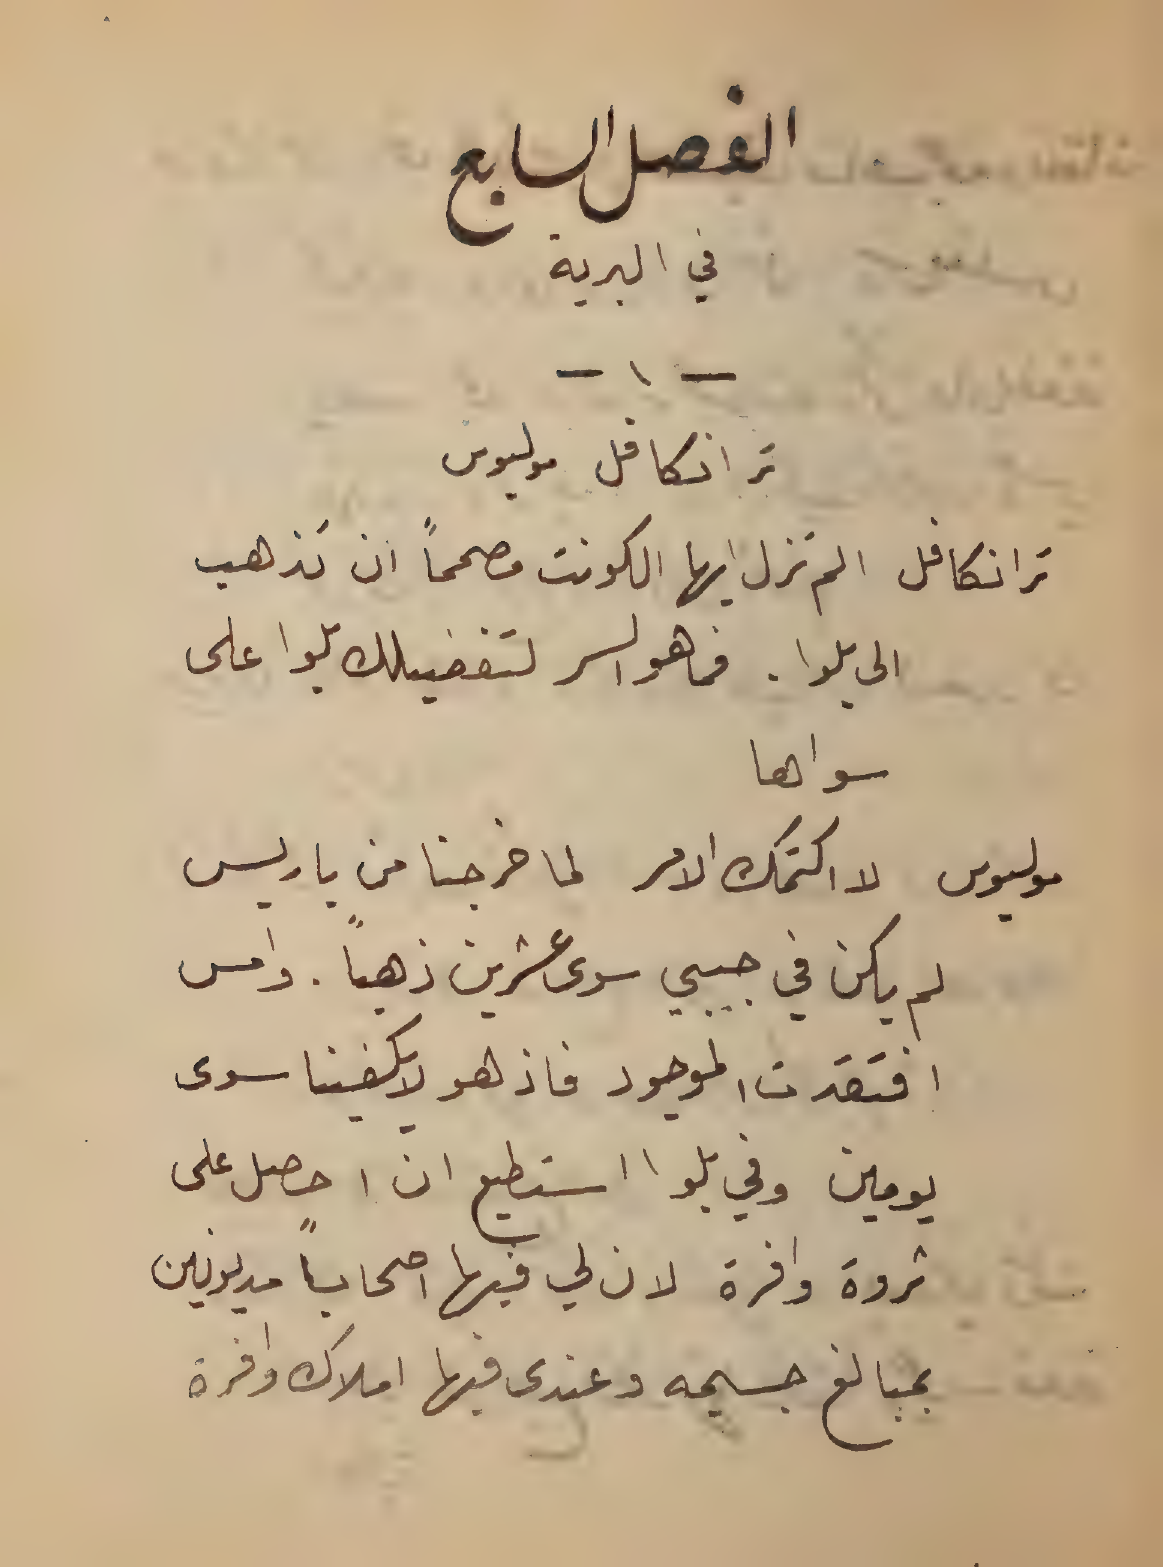 الفصل السابع
في البرية
— ١ —
ترانكافل موليوس
ترانكافل الم تزل ايها الكونت مصمماً ان تذهب
الى بلوا . فما هو السر لتفضيلك بلوا على
سواها
موليوس لا اكتمك الامر لما خرجنا من باريس
لم يكن في جيبي سوى عشرين ذهباً . وامس
افتقدت الموجود فاذ هو لا يكفينا سوى
يومين وفي بلوا استطيع ان احصل على
ثروة وافرة لان لي فيها اصحاباً مديونين
بمبالغ جسيمه وعندى فيها املاك وافرة